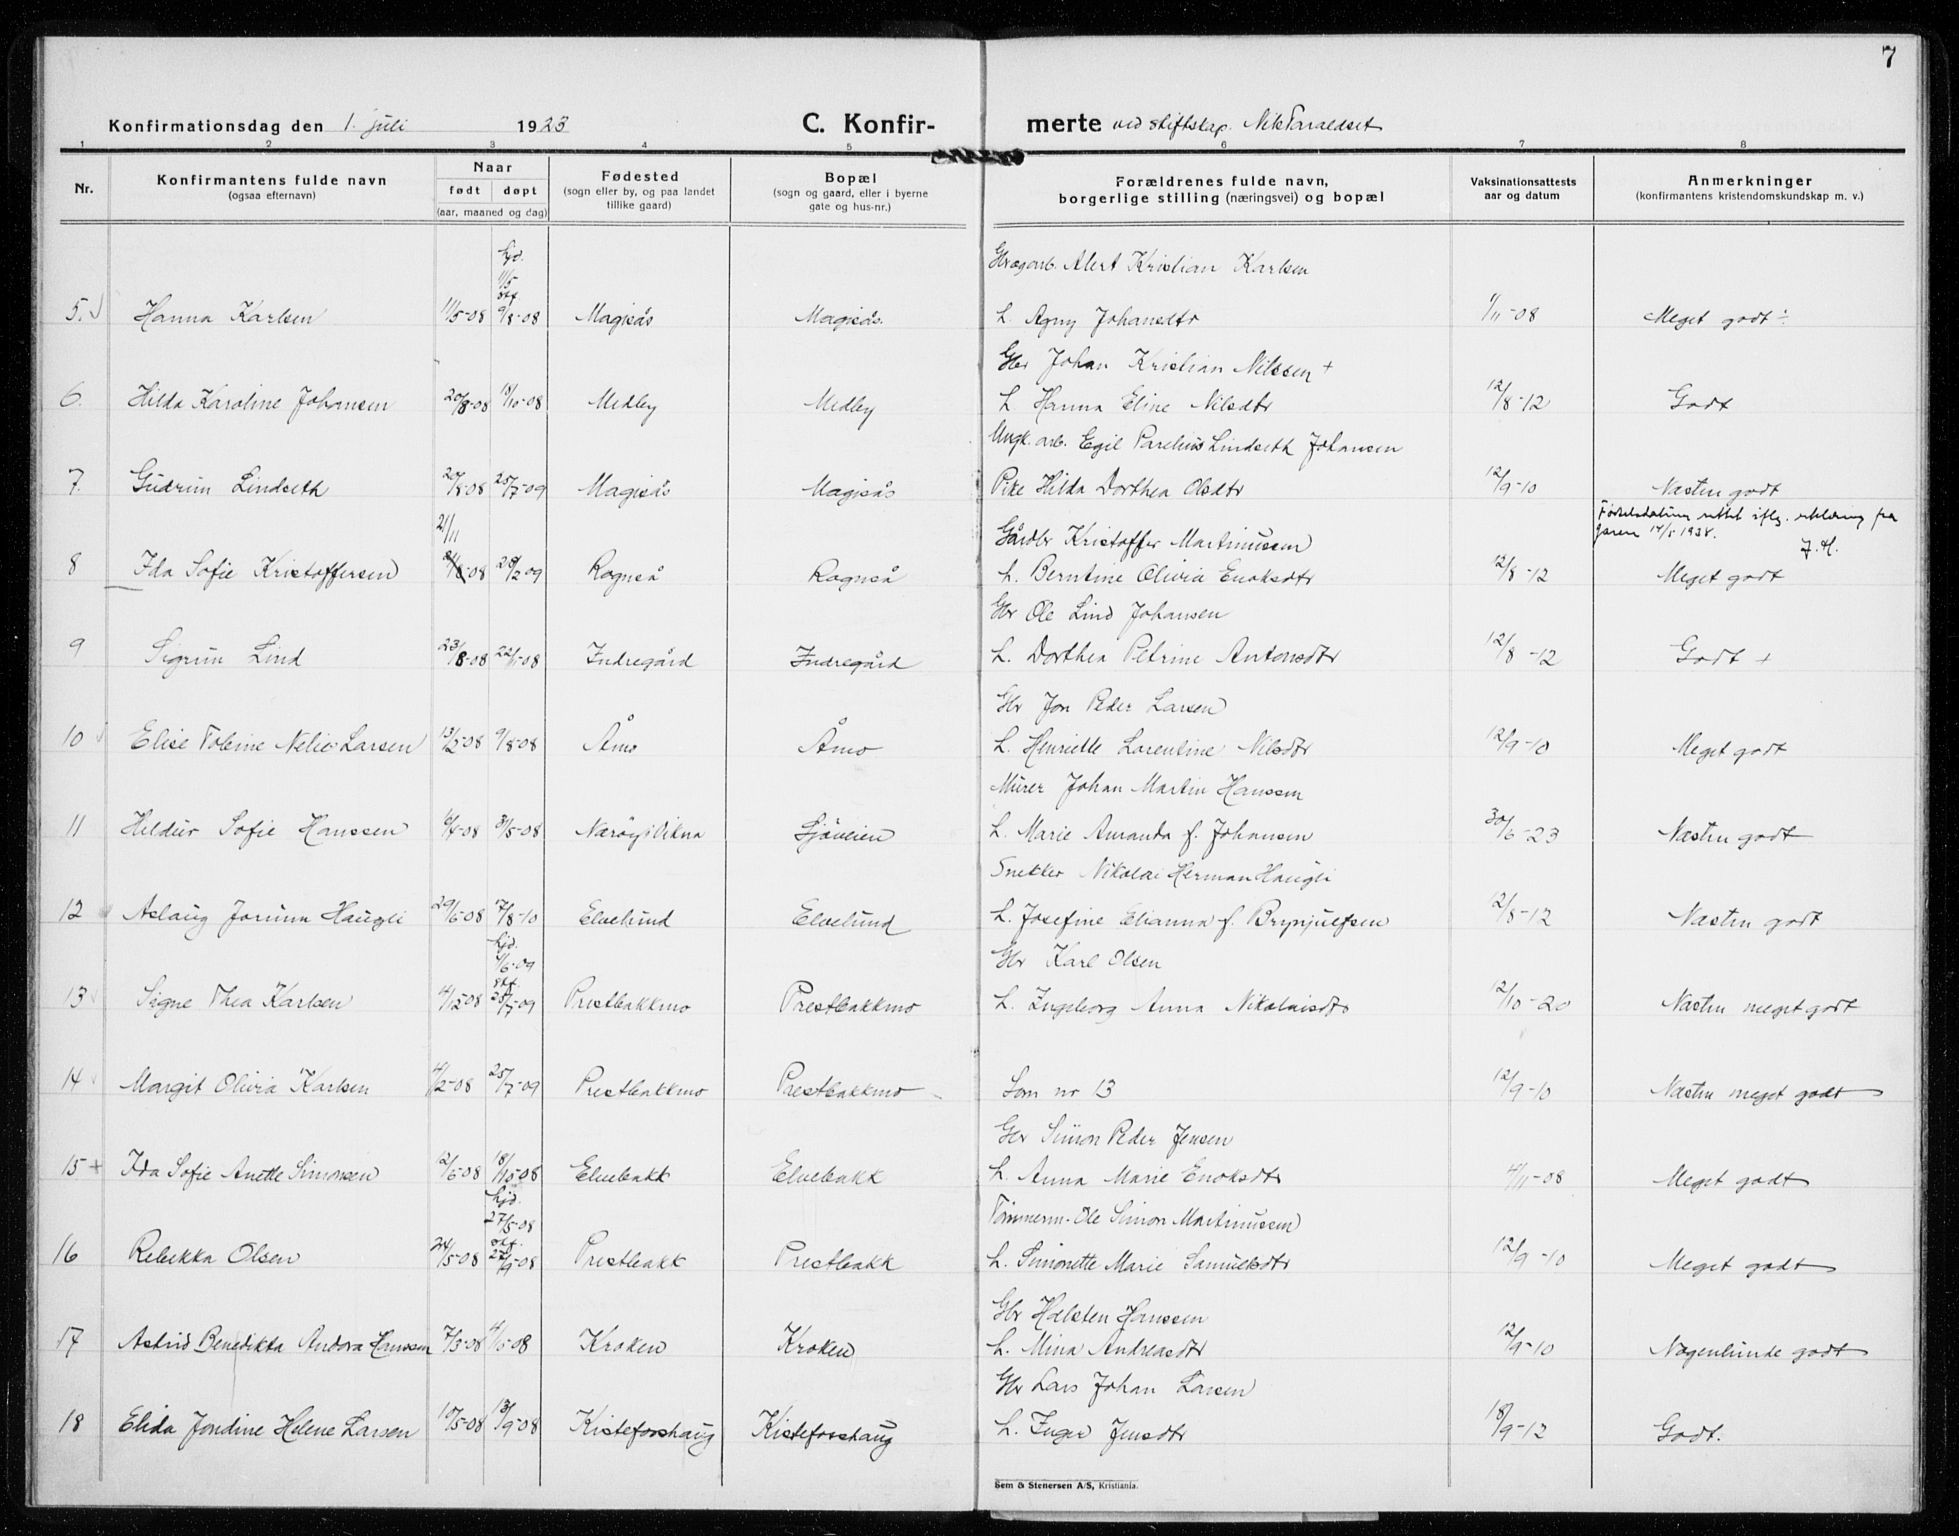 7
Konfirmationsdag den 1. juli 1923 C. Konfir- merte ved stiftskap. Nils Taraldset
1 2 3 4 5 6 7 8
Nr. Konfirmantens fulde navn (ogsaa efternavn) Naar født døpt (aar, maaned og dag) Fødested (sogn eller by, og paa landet tillike gaard) Bopæl (sogn og gaard, eller i byerne gate og hus-nr.) Forældrenes fulde navn, borgerlige stilling (næringsvei) og bopæl Vaksinationsattests aar og datum Anmerkninger (konfirmantens kristendomskundskap m. v.)
hjd. 11/5 stf. Alert Kristian Karlsen
5. Hanna Karlsen 11/5-08 9/8-08 Magisås Magisås. h. Agny Johansdtr 4/11-08 Meget godt ÷
Gbr Johan Kristian Nilssen +
6. Hilda Karoline Johansen 20/8-08 18/10-08 Medby Medby h Hanna Eline Nilsdtr 12/8-12 Godt
Ungk. arb. Egil Parelius Lindseth Johansen
7. Gudrun Lindseth 20/8-08 25/7-09 Magisås Magisås Pike Hilda Dorthea Olsdtr 12/9-10 Næsten godt
21/11 Gårdbr Kristoffer Martinussen Fødselsdatum rettet iflg. erklæring fra 14/5 1938. J.H.
8 Ida Sofie Kristoffersen 08 28/2 09 Rognså Rognså h. Berntine Olivia Enoksdtr 12/8-12 Meget godt
Gbr Ole Lind Johansen
9 Sigrun Lind 23/8-08 22/11-08 Indregård Indregård h. Dorthea Petrine Antonsdtr 12/8-12 Godt +
Gbr Jon Peder Larsen
10 Elise Tobine Nelie Larsen 13/5-08 9/8-08 Åmo Åmo h. Henriette Lorentine Nilsdtr 12/9-10 Meget godt
Murer Johan Martin Hanssen
11 Hildur Sofie Hanssen 6/4-08 31/5-08 Nærøy i Vikna Sjøveien h. Marie Amanda f. Johansen 30/6-23 Næsten godt
Snekker Nikolai Herman Haugli
12 Aslaug Jorunn Haugli 29/6-08 7/8-10 Elvelund Elvelund h. Josefine Elianna f. Brynjulfsen 12/8-12 Næsten godt
hjd. 1/6-09 stf. Gbr Karl Olsen
13 Signe Thea Karlsen 4/12-08 25/7-09 Prestbakkmo Prestbakkmo h. Ingeborg Anna Nikolaisdtr 12/10-20 Næsten meget godt
14 Margit Olivia Karlsen 4/12-08 25/7-09 Prestbakkmo Prestbakkmo Som nr 13 12/9-10 Næsten meget godt
Gbr Simon Peder Jensen
15 + Ida Sofie Anette Simonsen 12/6-08 18/10-08 Elvebakk Elvebakk h. Anna Marie Enoksdtr 4/11-08 Meget godt
hjd. 27/5-08 stf. Tømmerm. Ole Simon Martinussen
16 Rebekka Olsen 24/5-08 27/9-08 Prestbakk Prestbakk h. Simonette Marie Samuelsdtr 12/9-10 Meget godt
Gbr Halsten Hanssen
17 Astrid Benedikta Andora Hanssen 7/3-08 Kroken Kroken h. Mina Andreasdtr 12/9-10 Nogenlunde godt
Gbr Lars Johan Larsen
18 Elida Jondine Helene Larsen 19/5-08 13/9-08 Kisteforshaug Kisteforshaug h. Inger Jensdtr 18/9-12 Godt.
Sem & Stenersen A/S, Kristiania.